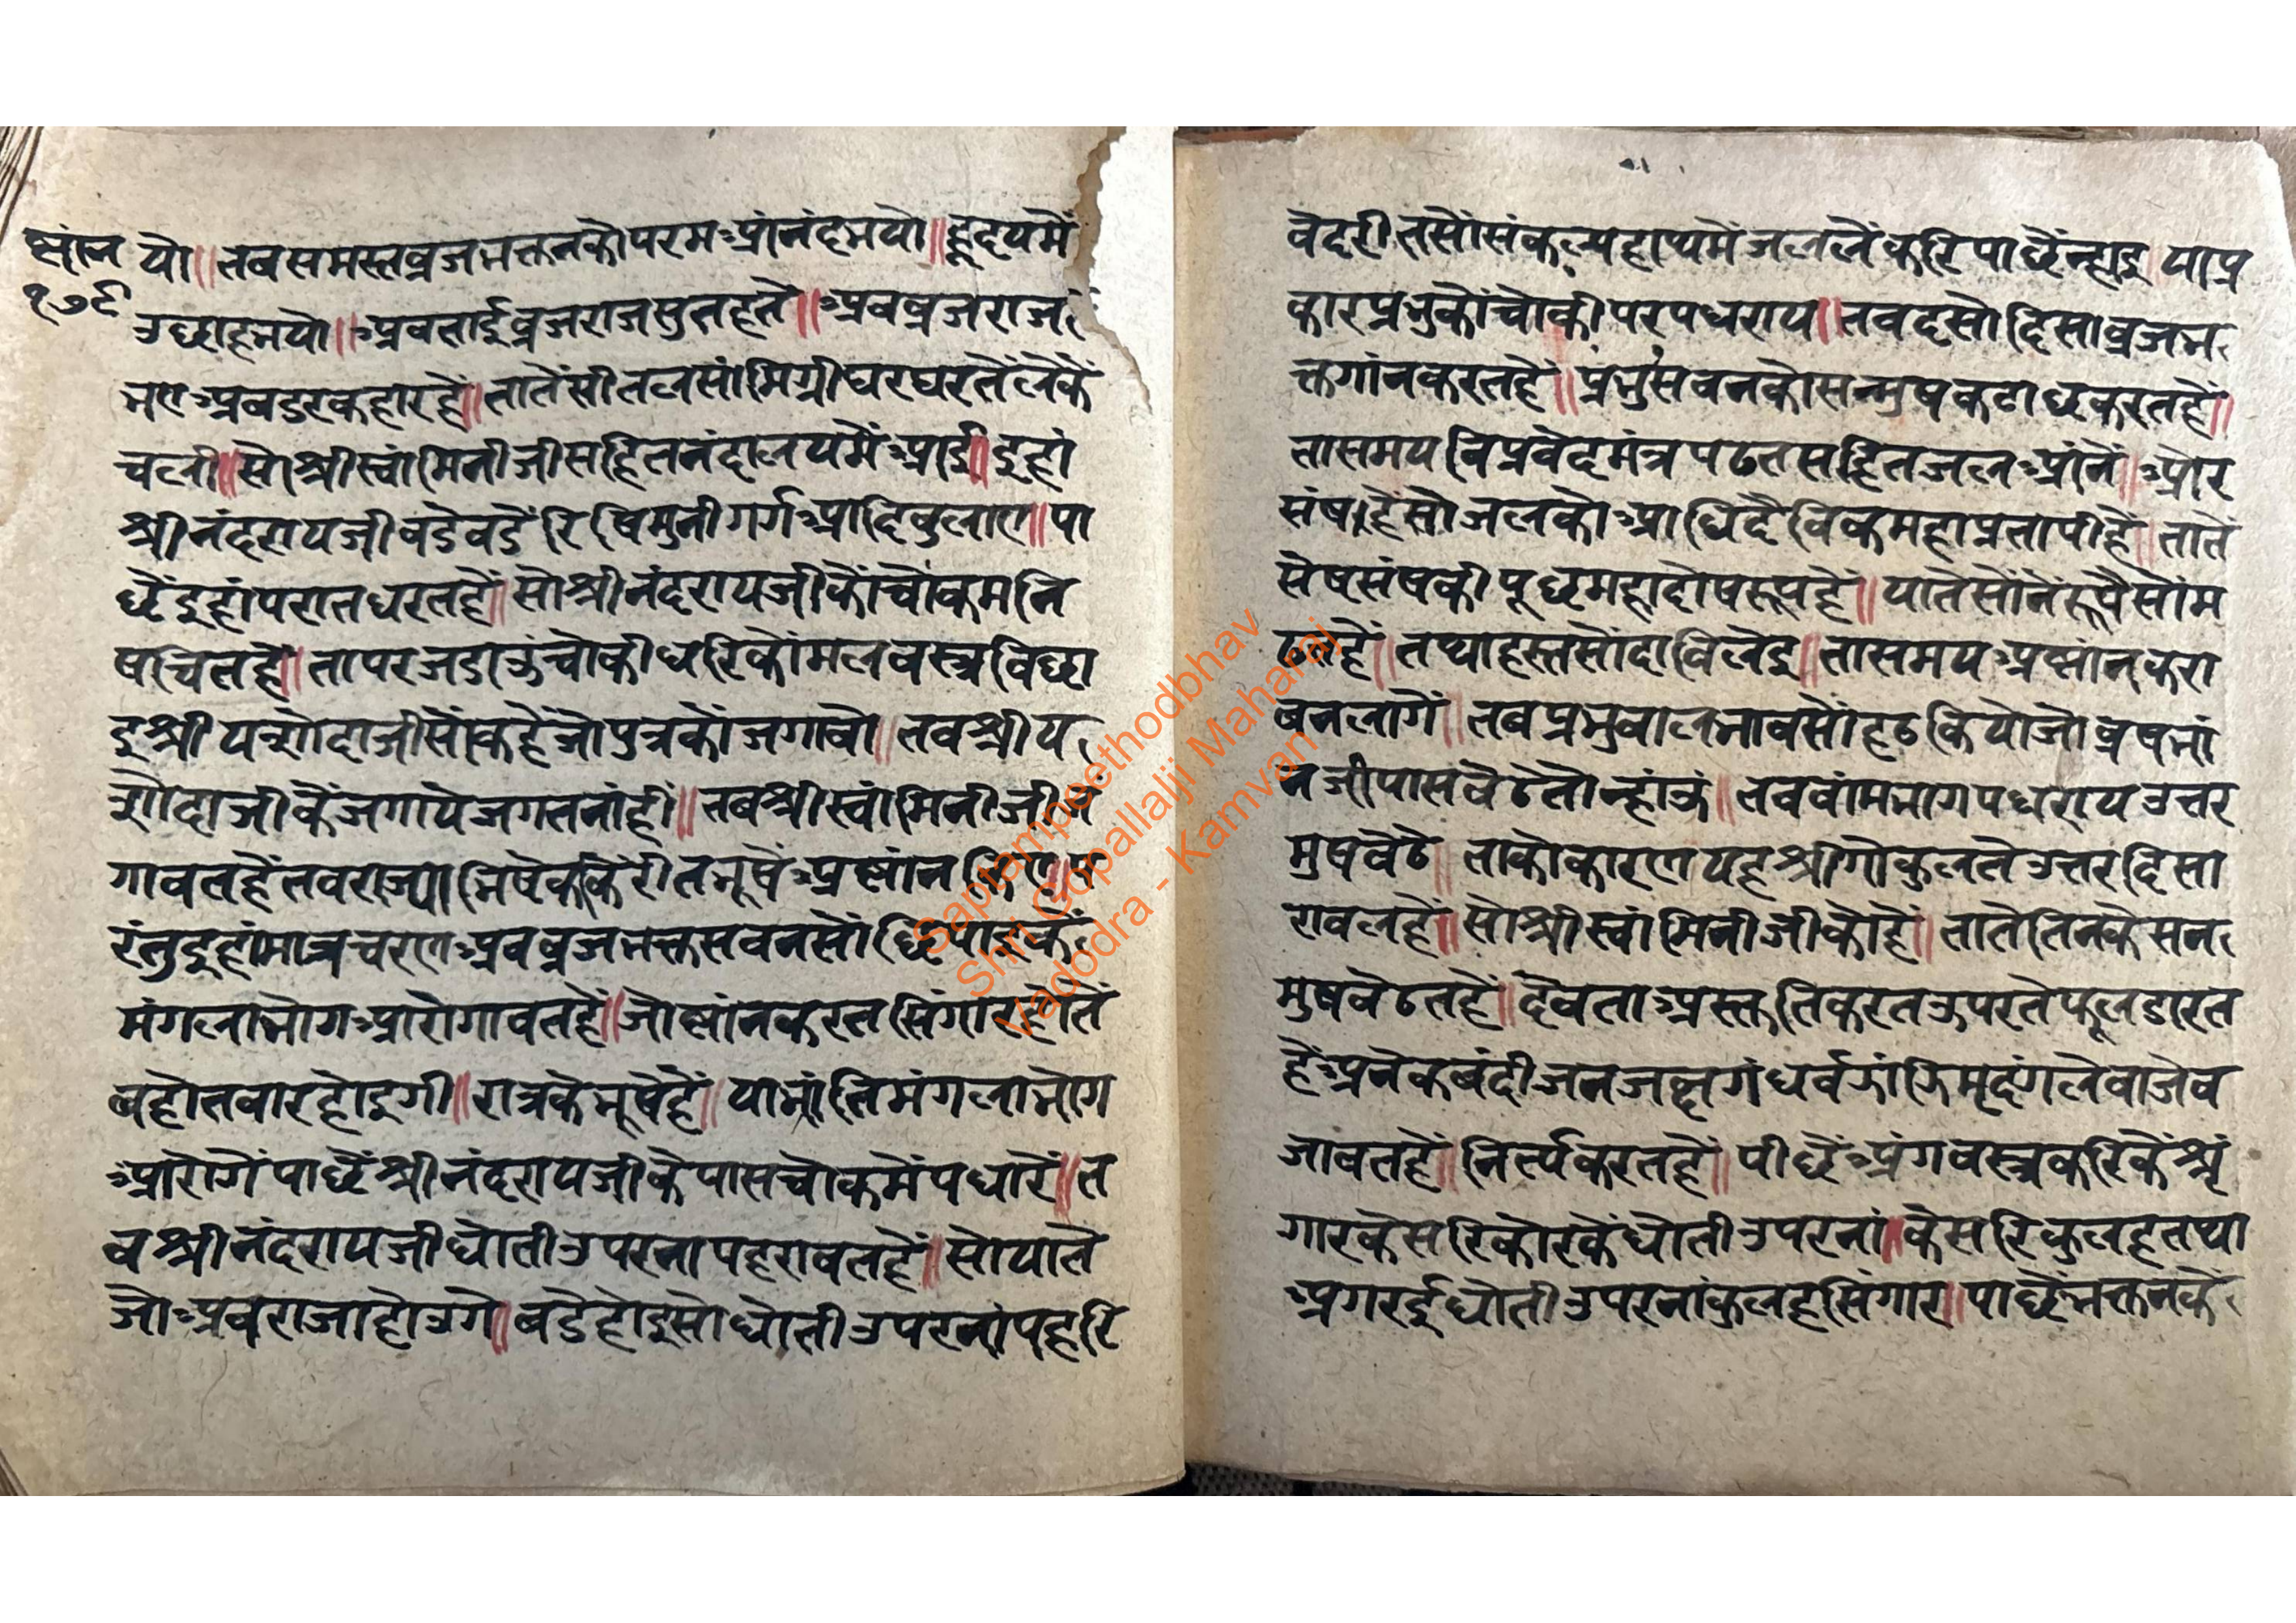 स्नांन
१७९
यो॥ तब समस्त व्रजभक्तनकौ परम आंनंद भयो॥ हृदयमें
उछाह भयो॥ अबताई व्रजराजसुत हते॥ अब व्रजराज
भए अब डर कहा रहै॥ तातें सीतल सांमिग्री घरघरतें लेकें
चली॥ सो श्री स्वांमिनीजी सहित नंदालयमें आई॥ इहां
श्री नंदरायजी बडेबडे रिषि मुनी गर्ग आदि बुलाए॥ पा
छें इहां परात धरत हें॥ सो श्री नंदरायजीकों चोक मनि
षचित हे॥ तापर जडाऊ चोकी धरि कोंमल वस्त्र बिछा
इ श्री यशोदाजीसों कहें जो पुत्रकों जगावो॥ तब श्री य
शोदाजीकें जगाये जगत नांहीं॥ तब श्री स्वांमिनीजी ज
गावत हें तब राज्याभिषेककेरी त भूषें अस्नांन किए॥ प
रंतु इहां मात्रचरण अब व्रजभक्त सबनसों छिपाइकें
मंगलाभोग आरोगावत हें॥ जो स्नांन करत सिंगार होतें
बहोत बार होइगी॥ रात्रके भूषे हें॥ या भांति मंगलाभोग
आरोगें पाछें श्री नंदरायजीके पास चोकमें पधारें॥ त
ब श्री नंदरायजी धोती उपरना पहरावत हें॥ सो यातें
जो अब राजा होउगे॥ बडे होइ सो धोती उपरनां पहरि
वेदरीतसों संकल्प हाथमें जल लें करि पाछें न्हाइ॥ या प्र
कार प्रभुकों चोकी पर पधराय॥ तब दसो दिसा व्रजभ
क्त गांन करत हें॥ प्रभु सबनकों सन्मुष कटाछ करत हें॥
ता समय विप्र वेदमंत्र पढत सहित जल आंनें॥ और
संष हें सो जलको आधिदैविक महाप्रतापी हें॥ तातें
सेष संषकी पूछ महादोषरूप हें॥ यातें सोंनें रूपेसों म
ढत हें॥ तथा हस्तसों दाबि लेइ॥ ता समय अस्नांन करा
बन लागें॥ तब प्रभु बालभावसों हठ कियो जो व्रषभां
नजी पास बेठे तो न्हांऊं॥ तब बांमभाग पधराय उत्तर
मुष बेठे॥ ताको कारण यह श्री गोकुलतें उत्तर दिसा
रावल हें॥ सो श्री स्वांमिनीजीको हें॥ तातें तिनके सन
मुष बेठत हें॥ देवता अस्तुति करत ऊपरतें फूल डारत
हें अनेक बंदीजन जछ गंधर्व झांझि मृदंग ले बाजे ब
जावत हें॥ निर्त्य करत हें॥ पीछें अंगवस्त्र करिकें श्रृं
गार केसरि कोरकें धोती उपरनां॥ केसरि कुलह तथा
अगरई धोती उपरनां कुलह सिंगार॥ पाछें भक्तनकें
Saptampeethodbhav
Shri Gopallalji Maharaj
Vadodra - Kamvan